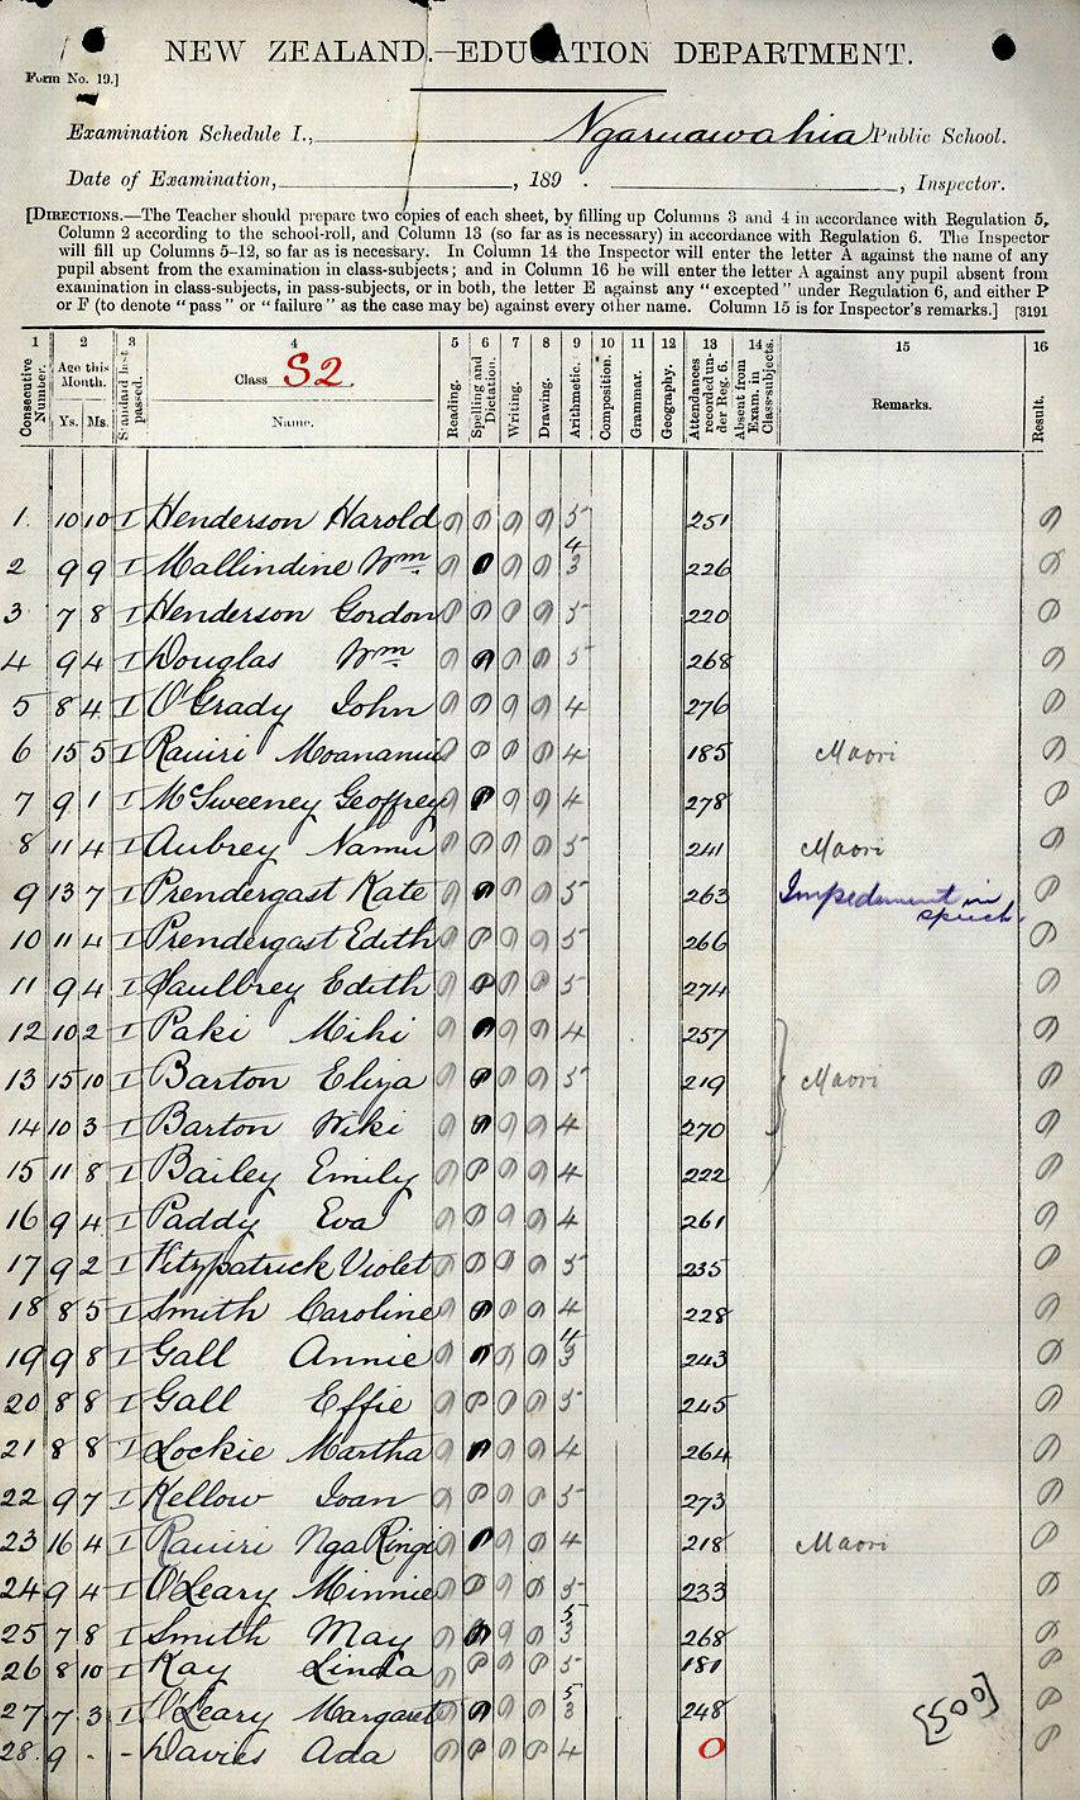 NEW ZEALAND.—EDUCATION DEPARTMENT.
Form No. 19.]
Examination Schedule I., Ngaruawahia Public School.
Date of Examination, , 189 . , Inspector.
[DIRECTIONS.—The Teacher should prepare two copies of each sheet, by filling up Columns 3 and 4 in accordance with Regulation 5,
Column 2 according to the school-roll, and Column 13 (so far as is necessary) in accordance with Regulation 6. The Inspector
will fill up Columns 5–12, so far as is necessary. In Column 14 the Inspector will enter the letter A against the name of any
pupil absent from the examination in class-subjects; and in Column 16 he will enter the letter A against any pupil absent from
examination in class-subjects, in pass-subjects, or in both, the letter E against any "excepted" under Regulation 6, and either P
or F (to denote "pass" or "failure" as the case may be) against every other name. Column 15 is for Inspector's remarks.] [3191
1 2 3 4 5 6 7 8 9 10 11 12 13 14 15 16
Consecutive Number. Age this Month. Ys. Ms. Standard last passed. Class S2. Name. Reading. Spelling and Dictation. Writing. Drawing. Arithmetic. Composition. Grammar. Geography. Attendances recorded under Reg. 6. Absent from Exam. in Class-subjects. Remarks. Result.
1. 10 10 I Henderson Harold P P P P 5 251 P
2 9 9 I Mallindine Wm. P P P P 4 3 226 P
3 7 8 I Henderson Gordon P P P P 5 220 P
4 9 4 I Douglas Wm. P P P P 5 268 P
5 8 4 I O'Grady John P P P P 4 276 P
6 15 5 I Rauiri P P P P 4 185 Maori P
7 9 1 I McSweeney Geoffrey P P P P 4 278 P
8 11 4 I Aubrey Namu P P P P 5 241 Maori P
9 13 7 I Prendergast Kate P P P P 5 263 Impediment in speech. P
10 11 4 I Prendergast Edith P P P P 5 266 P
11 9 4 I Saulbrey Edith P P P P 5 274 P
12 10 2 I Paki Mihi P P P P 4 257 P
13 15 10 I Barton Eliza P P P P 5 219 Maori P
14 10 3 I Barton Wiki P P P P 4 270 P
15 11 8 I Bailey Emily P P P P 4 222 P
16 9 4 I Paddy Eva P P P P 4 261 P
17 9 2 I Fitzpatrick Violet P P P P 5 235 P
18 8 5 I Smith Caroline P P P P 4 228 P
19 9 8 I Gall Annie P P P P 4 3 243 P
20 8 8 I Gall Effie P P P P 5 245 P
21 8 8 I Lockie Martha P P P P 4 264 P
22 9 7 I Kellow Joan P P P P 5 273 P
23 16 4 I Rauiri Nga Ringi P P P P 4 218 Maori P
24 9 4 I O'Leary Minnie P P P P 5 233 P
25 7 8 I Smith May P P P P 5 3 268 P
26 8 10 I Kay Linda P P P P 5 181 P
27 7 3 I O'Leary Margaret P P P P 5 3 248 [500] P
28. 9 - - Davies Ada P P P P 4 0 P